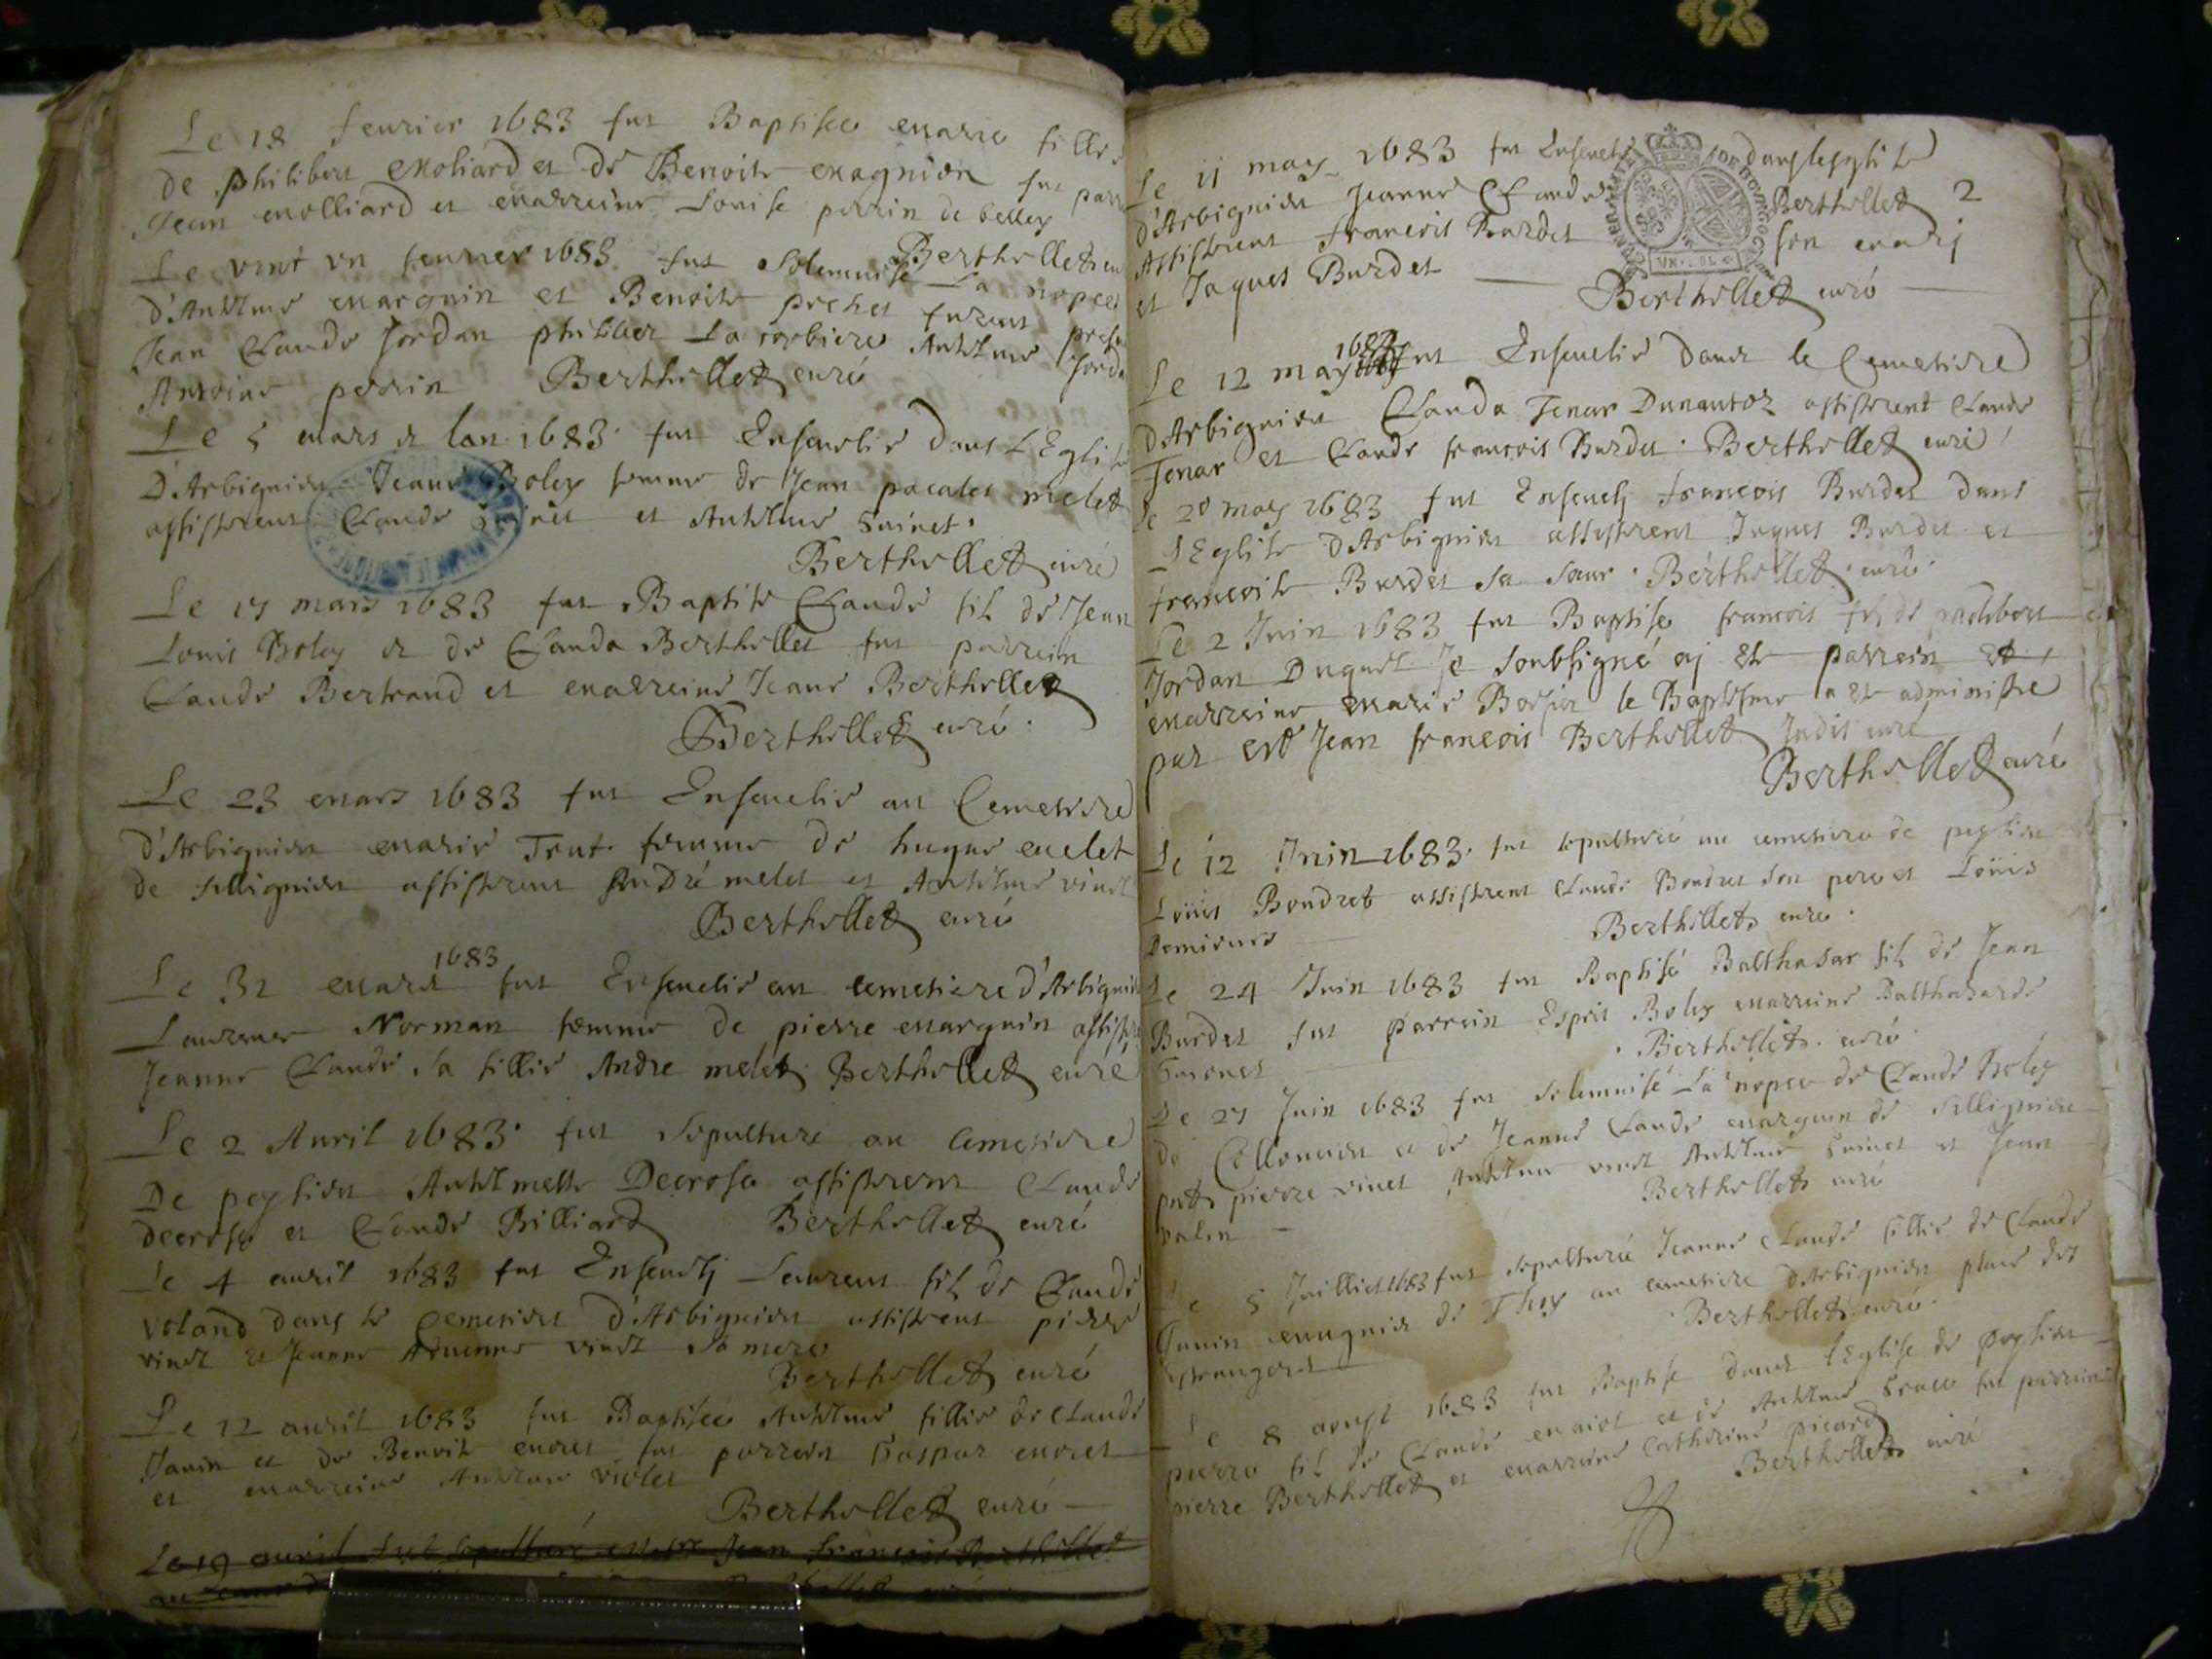 Le 18 feurier 1683 fut Baptisee marie fillie
de philibert Moliard et de Benoite magnion fut parr
Jean molliard et marreine Louise perrin de belley
Berthollet cu
Le vint vn feurier 1683 fut solemnise La nopces
d'Anthelme marguin et Benoite prehet furent prese
Jean Claude Jordan philibert La corbiere Anthelme Jorda
Antoine perrin Berthollet curé
Le 5 mars de lan 1683 fut Enseuelie dans L'Eglise
D'Arbignieu Jeanne Boley femme de Jean pacalet melet
assisterent Claude et Anthelme Guinet
Berthollet curé
Le 17 mars 1683 fut Baptise Claude fil de Jean
Louis Boley et de Clauda Berthollet fut parrein
Claude Bertrand et marreine Jeane Berthollet
Berthollet curé
Le 23 mars 1683 fut Enseuelie au Cemetiere
d'Arbignieu marie Trut femme de hugue melet
de sillignieu assisterent André melet et Anthelme vinet
Berthollet curé
1683
Le 31 mars fut Enseuelie au cemetiere d'Arbignieu
Laurence Norman femme de pierre marguin assiste
Jeanne Claude sa fillie Andre melet Berthollet curé
Le 2 Auril 1683 fut sepulture au Cemetiere
De peyzieu Anthelmette Decroso assisterent Claude
decroso et Claude Billiard Berthollet curé
Le 4 auril 1683 fut Enseuelj Laurent fil de Claude
voland dans le Cemetiere d'Arbignieu assisterent pierre
vinet et Jeanne vinet sa mere
Berthollet curé
Le 12 auril 1683 fut Baptisee Anthelme fillie de Claude
Janin et de Benoite moret fut parrein Gaspar moret
et marreine Anthelme violet
Berthollet curé
Le 19 auril fut sepulturé messr Jean francois Berthollet
Le 11 may 1683 fut Enseuelie dans lesglise
d'Arbignieu Jeanne Claude Berthollet 2
Assisterent francois Burdet son marj
et Jaques Burdet
Berthollet curé
1683
Le 12 may fut Enseuelie dans le Cemetiere
D'Arbignieu Clauda Tenar Dunantoz assisterent Claude
Tenar et Claude francois Burdet Berthollet curé
Le 20 may 1683 fut Enseuelj francois Burdet dans
L'Eglise D'Arbignieu assisterent Jaques Burdet et
francoise Burdet sa soeur Berthollet curé
Le 2 Juin 1683 fut Baptise francois fil de philibert
Jordan Duquet Je soubsigné aj ete parrein et
marreine marie Borsier le Baptesme a ete administre
par Jean francois Berthollet Jadis curé
Berthollet curé
Le 12 Juin 1683 fut sepulturé au cemetiere de peyzieu
Louis Bondret assisterent Claude Bondret son pere et Louis
Demieure
Berthollet curé
Le 24 Juin 1683 fut Baptisé Balthasar fil de Jean
Burdet fut parrein Esprit Boley marreine Balthazarde
Berthollet curé
Le 27 Juin 1683 fut solemnisé La nopce de Claude Boley
de Collomieu et de Jeanne Claude marguin de sillignieu
pnts pierre vinet Anthelme vinet Anthelme Guinet et Jean
valin
Berthollet curé
Le 5 Juilliet 1683 fut sepulturée Jeanne Claude fillie de Claude
Janin mugnier de Thoy au cemetiere d'Arbignieu place des
estrangers
Berthollet curé
Le 8 aoust 1683 fut Baptise dans l'Eglise de peyzieu
pierre fil de Claude et de Anthelme fut parrein
pierre Berthollet et marreine Catherine picard
Berthollet curé